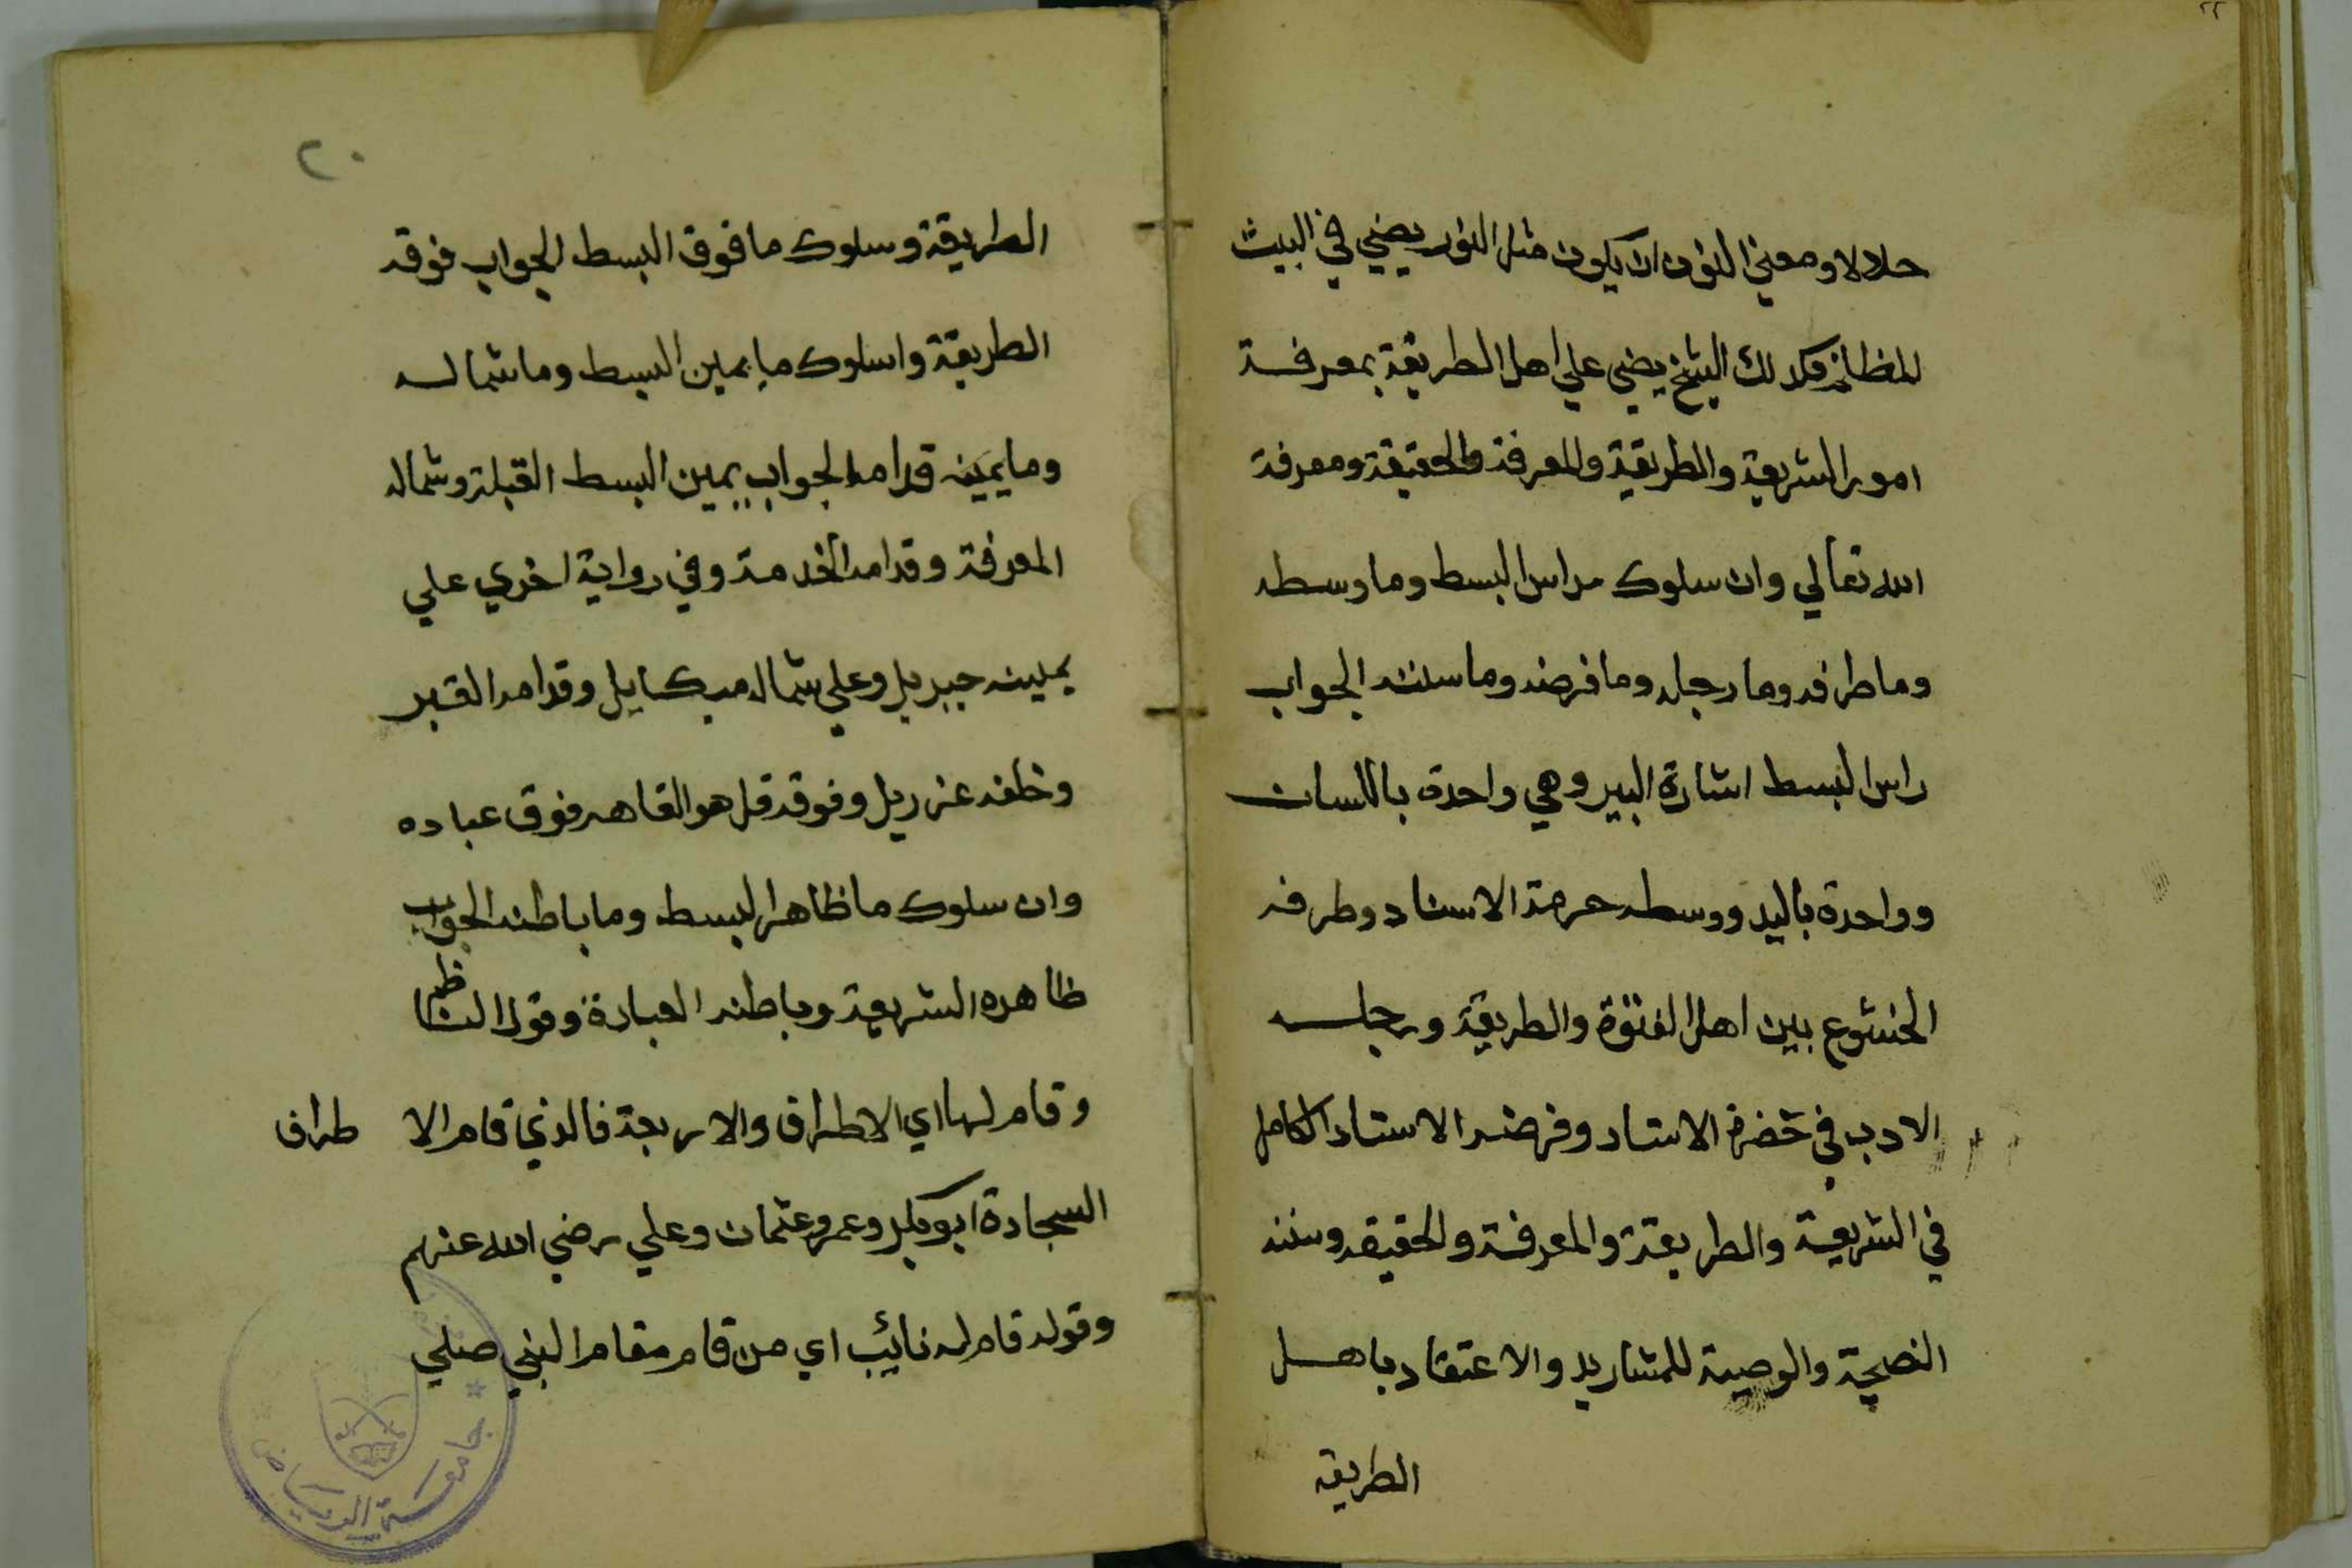 حلالا ومعني النون ان يكون مثل النور يضي في البيت
المظلم فكدلك الشيخ يضي علي اهل الطريقة بمعرفة
امور الشريعة والطريقة والمعرفة والحقيقة ومعرفة
الله تعالي وان سلوك راس البسط وما وسطه
وما طرفه وما رجله وما فرضه وما سنته الجواب
راس البسط اشارة البير وهي واحدة باللسان
وواحدة باليد ووسطه حرمة الاستاد وطرفه
الخشوع بين اهل الفتوة والطريقة ورجله
الادب في حضرة الاستاد وفرضه الاستاد الكامل
في الشريعة والطريقة والمعرفة والحقيقه وسننه
النصيحة والوصية للمشاريد والاعتقاد باهل
الطريقه
٢٠
الطريقة وسلوك ما فوق البسط الجواب فوقه
الطريقة واسلوك ما يمين البسط وما شماله
وما يمينه قدامه الجواب يمين البسط القبلة وشماله
المعرفة وقدامه الخدمة وفي رواية اخري علي
يمينه جبريل وعلي شماله ميكايل وقدامه القبر
وخلفه عزريل وفوقه قل هو القاهر فوق عباده
وان سلوك ما ظاهر البسط وما باطنه الجواب
ظاهره الشريعة وباطنه العبادة وقول الناظم
وقام لها اي الاطراف والاربعة فالذي قام الا طراف
السجادة ابو بكر وعمر وعثمان وعلي رضي الله عنهم
وقوله قام له نائب اي من قام مقام النبي صلي
جامعة الرياض